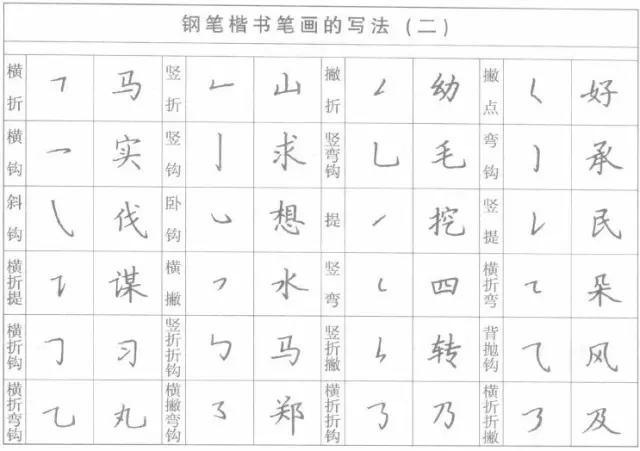 钢笔楷书笔画的写法（二）
横折 ㇕ 马 竖折 ㇗ 山 撇折 ㇜ 幼 撇点 ㇛ 好
横钩 ㇖ 实 竖钩 亅 求 竖弯钩 乚 毛 弯钩 ㇁ 承
斜钩 ㇂ 伐 卧钩 ㇃ 想 提 ㇀ 挖 竖提 ㇙ 民
横折提 ㇊ 谋 横撇 ㇇ 水 竖弯 ㇄ 四 横折弯 ㇍ 朵
横折钩 ㇆ 习 竖折折钩 ㇉ 马 竖折撇 ㇞ 转 背抛钩 ⺄ 风
横折弯钩 ㇈ 丸 横撇弯钩 ㇌ 郑 横折折钩 ㇡ 乃 横折折撇 ㇋ 及